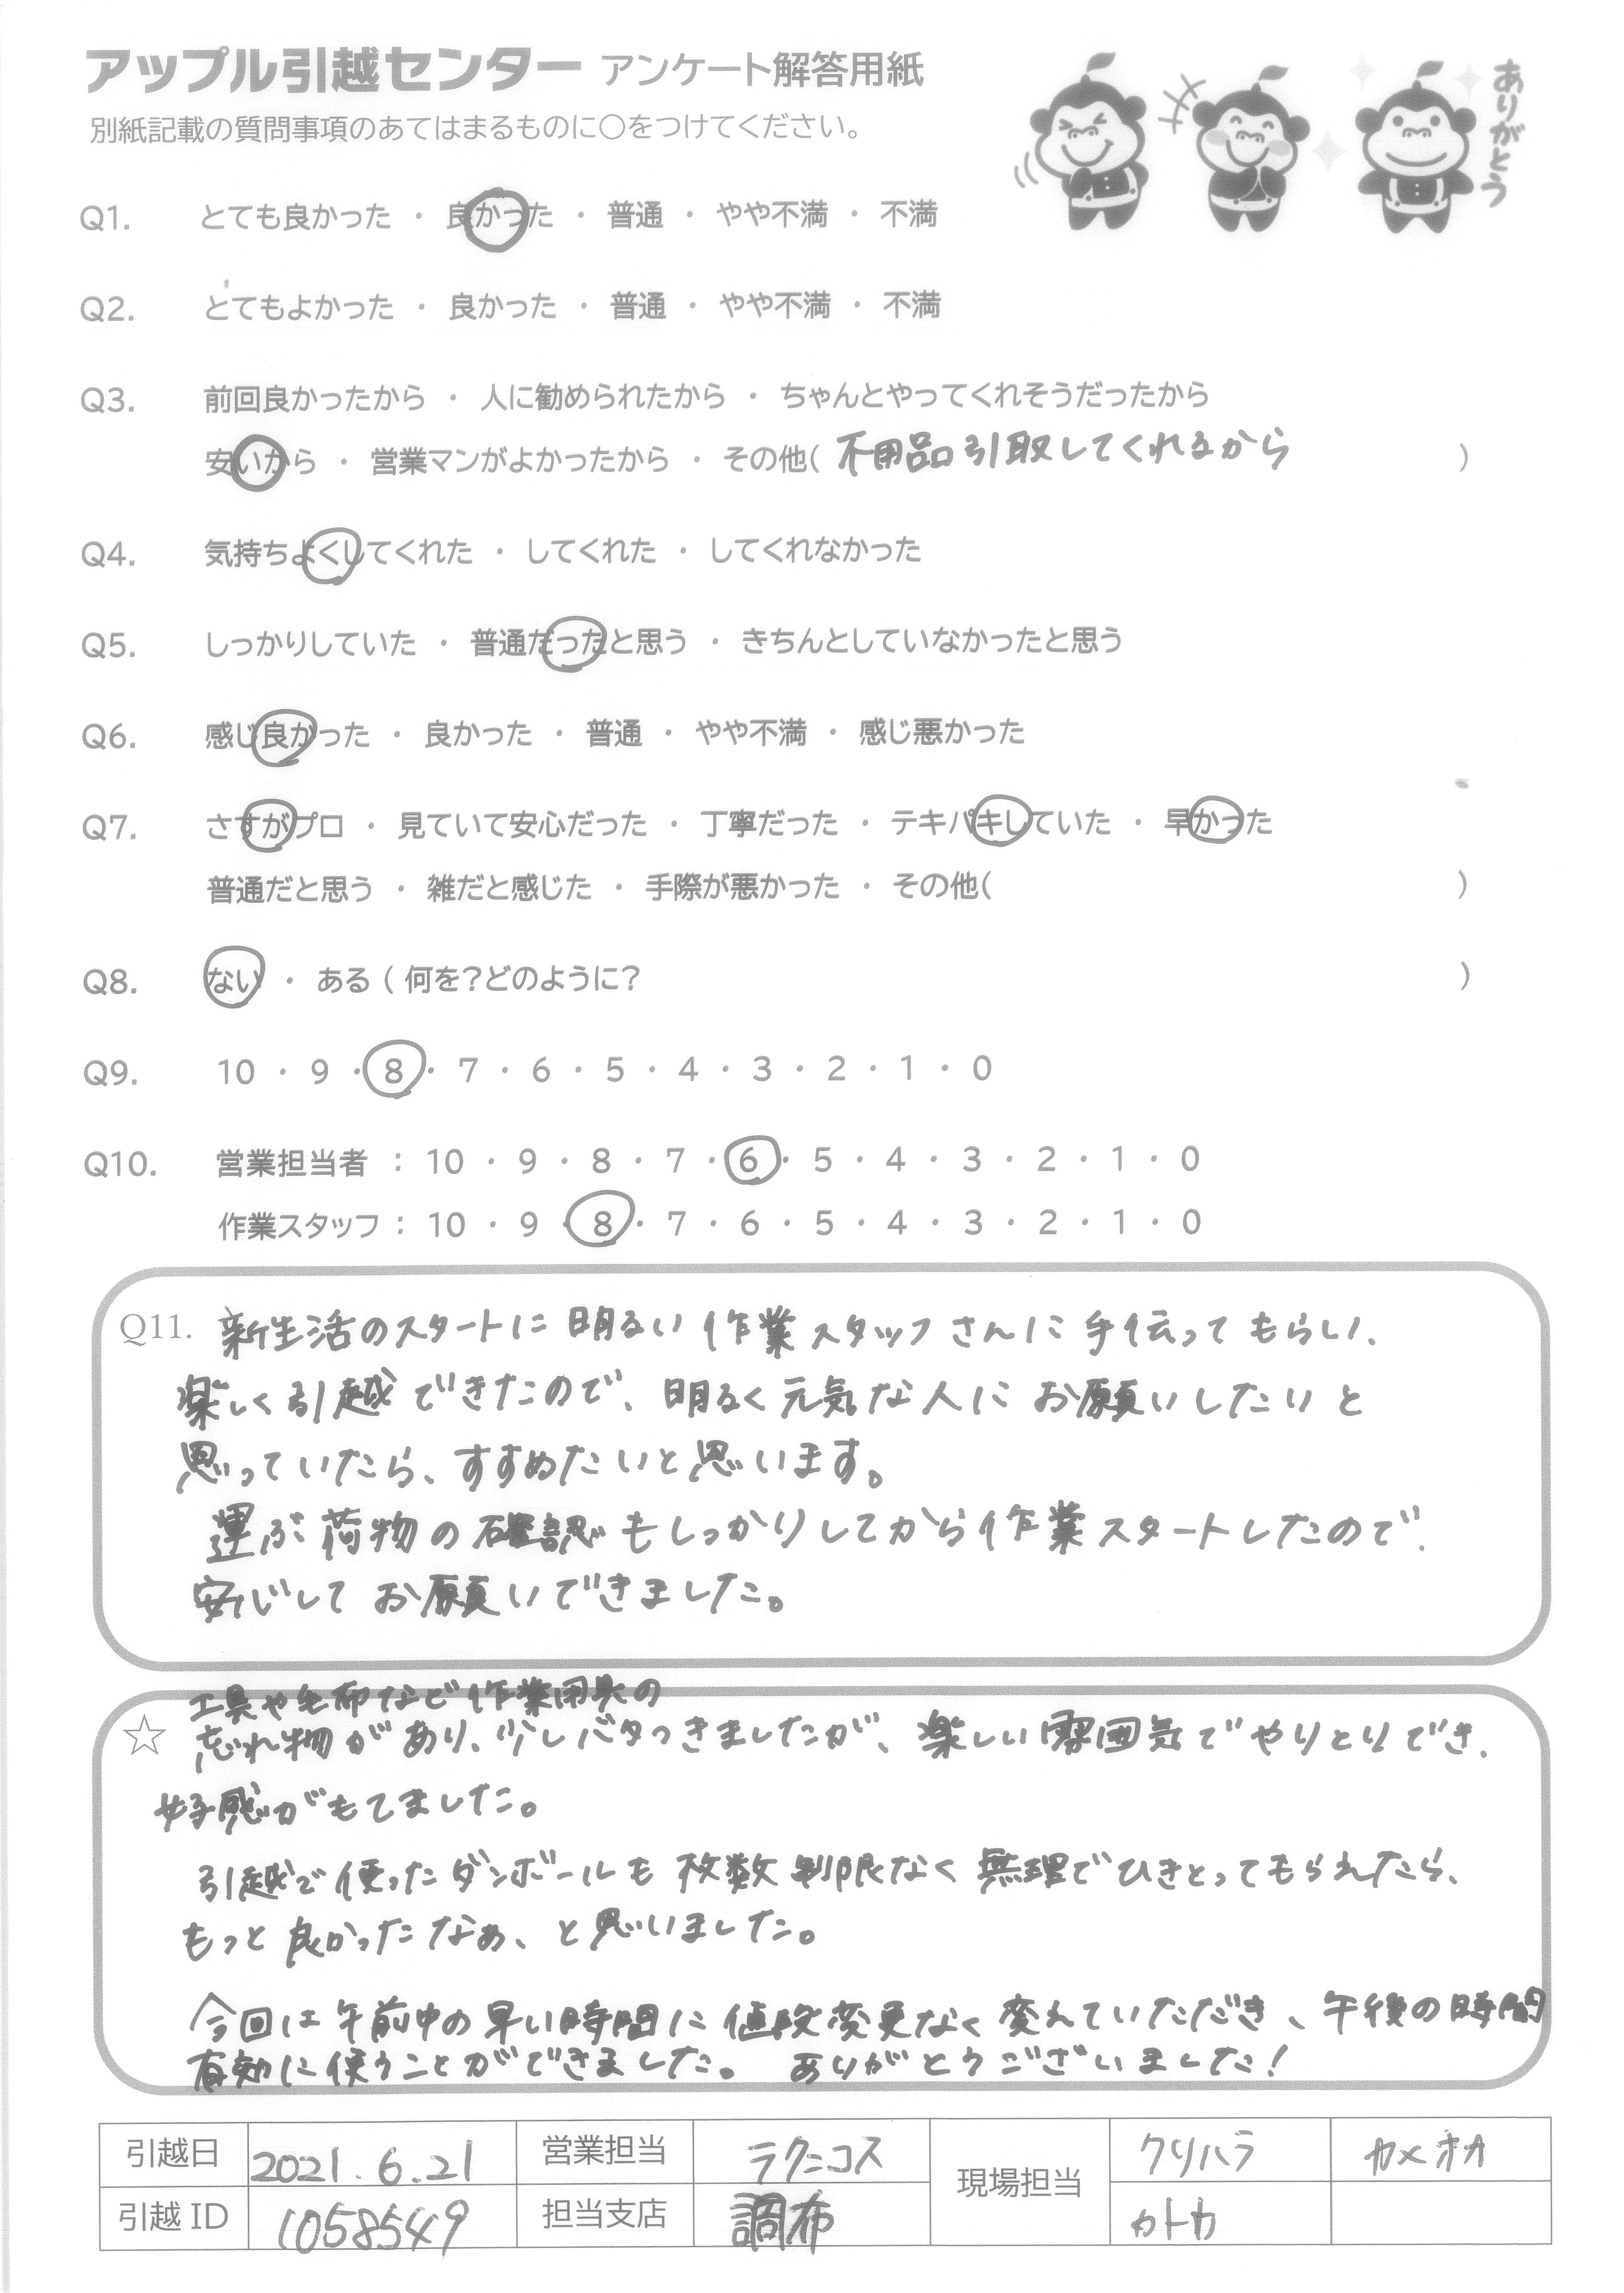 アップル引越センター アンケート解答用紙
ありがとう
別紙記載の質問事項のあてはまるものに○をつけてください。
Q1. とても良かった ・ 良かった ・ 普通 ・ やや不満 ・ 不満
Q2. とてもよかった ・ 良かった ・ 普通 ・ やや不満 ・ 不満
Q3. 前回良かったから ・ 人に勧められたから ・ ちゃんとやってくれそうだったから
安いから ・ 営業マンがよかったから ・ その他( 不用品引取してくれるから )
Q4. 気持ちよくしてくれた ・ してくれた ・ してくれなかった
Q5. しっかりしていた ・ 普通だったと思う ・ きちんとしていなかったと思う
Q6. 感じ良かった ・ 良かった ・ 普通 ・ やや不満 ・ 感じ悪かった
Q7. さすがプロ ・ 見ていて安心だった ・ 丁寧だった ・ テキパキしていた ・ 早かった
普通だと思う ・ 雑だと感じた ・ 手際が悪かった ・ その他( )
Q8. ない ・ ある ( 何を?どのように? )
Q9. 10 ・ 9 ・ 8 ・ 7 ・ 6 ・ 5 ・ 4 ・ 3 ・ 2 ・ 1 ・ 0
Q10. 営業担当者 : 10 ・ 9 ・ 8 ・ 7 ・ 6 ・ 5 ・ 4 ・ 3 ・ 2 ・ 1 ・ 0
作業スタッフ : 10 ・ 9 ・ 8 ・ 7 ・ 6 ・ 5 ・ 4 ・ 3 ・ 2 ・ 1 ・ 0
Q11. 新生活のスタートに明るい作業スタッフさんに手伝ってもらい、
楽しく引越できたので、明るく元気な人にお願いしたいと
思っていたら、すすめたいと思います。
運ぶ荷物の確認もしっかりしてから作業スタートしたので、
安心してお願いできました。
工具や毛布など作業用具の
☆ 忘れ物があり、少しバタつきましたが、楽しい雰囲気でやりとりでき、
好感がもてました。
引越で使ったダンボールも枚数制限なく無理でひきとってもらえたら、
もっと良かったなぁ、と思いました。
今回は午前中の早い時間に値段変更なく変えていただき、午後の時間
有効に使うことができました。 ありがとうございました!
引越日 2021.6.21 営業担当 ラクニコス 現場担当 クリハラ カメオカ
引越ID 1058549 担当支店 調布 カトカ